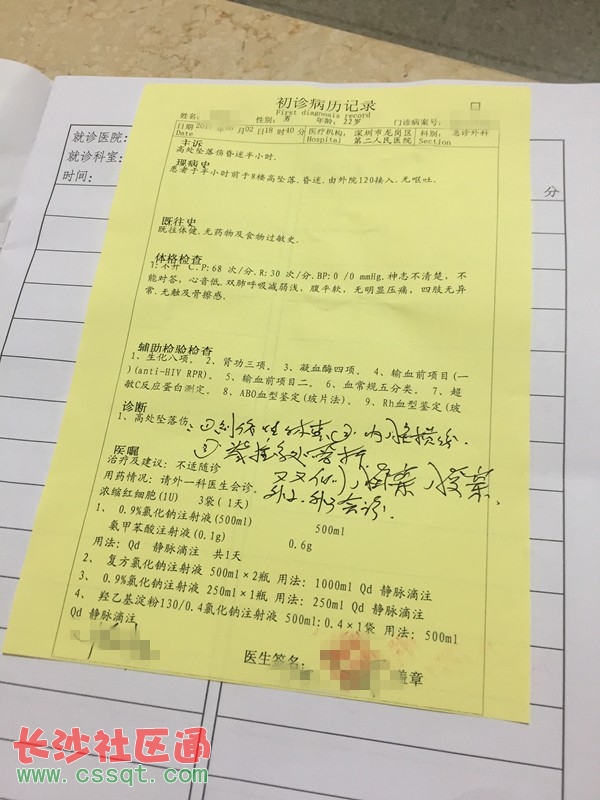 初诊病历记录
First diagnosis record
姓名: 性别: 男 年龄: 22岁 门诊病案号:
日期 月02日18时40分 医疗机构: 深圳市龙岗区 科别: 急诊外科
Date Hospital 第二人民医院 Section
主诉
高处坠落伤昏迷半小时.
现病史
患者于半小时前于8楼高坠落.昏迷.由外院120接入.无呕吐.
既往史
既往体健.无药物及食物过敏史.
体格检查
T:不升 C.P:68 次/分.R:30 次/分.BP:0 /0 mmHg.神志不清楚, 不
能对答, 心音低.双肺呼吸减弱浅, 腹平软, 无明显压痛, 四肢无异
常.无触及骨擦感.
辅助检验检查
1、生化八项。 2、肾功三项。 3、凝血酶四项。 4、输血前项目(一
)(anti-HIV RPR)。 5、输血前项目二。 6、血常规五分类。 7、超
敏C反应蛋白测定。 8、ABO血型鉴定(玻片法)。 9、Rh血型鉴定(玻
诊断
1、高处坠落伤:
医嘱
治疗及建议: 不适随诊
用药情况: 请外一科医生会诊.
浓缩红细胞(1U) 3袋( 1天)
1、 0.9%氯化钠注射液(500ml) 500ml
氨甲苯酸注射液(0.1g) 0.6g
用法: Qd 静脉滴注 共1天
2、 复方氯化钠注射液 500ml×2瓶 用法: 1000ml Qd 静脉滴注
3、 0.9%氯化钠注射液 250ml×1瓶 用法: 250ml Qd 静脉滴注
4、 羟乙基淀粉130/0.4氯化钠注射液 500ml:0.4×1袋 用法: 500ml
Qd 静脉滴注
医生签名: 盖章
就诊医院:
就诊科室:
时间:
分
长沙社区通
www.cssqt.com